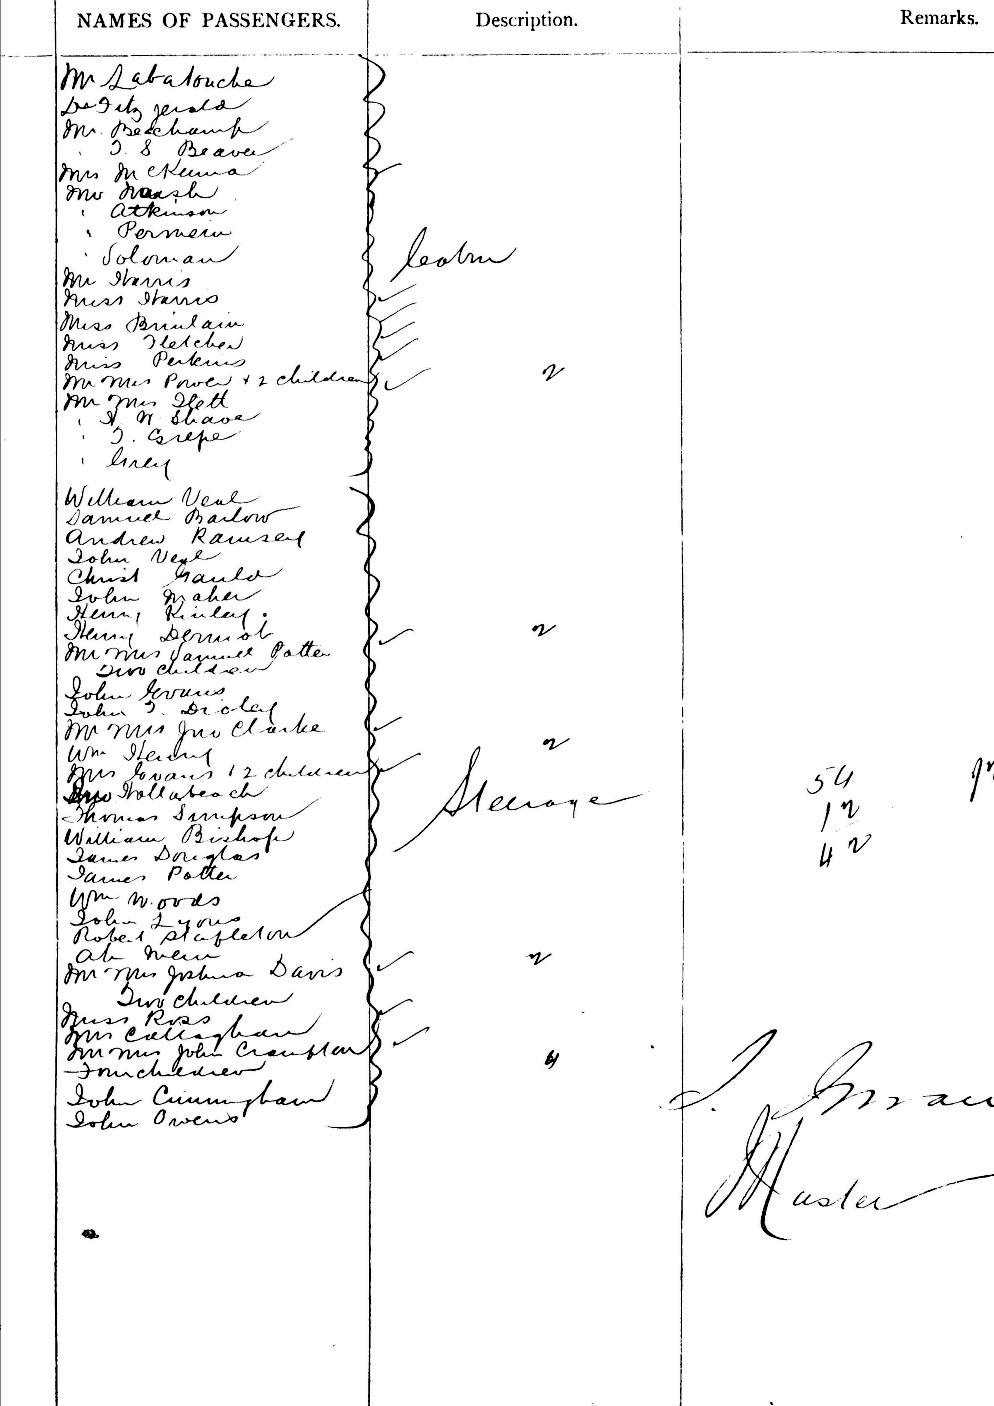 NAMES OF PASSENGERS. Description. Remarks.
Mr Labatouche
Dr Fitzgerald
Mr. Beachamp
T. S Beaver
Mrs McKenna
Mr Marsh
" Atkinson
" Permein
" Soloman
Cabin
Mr Harris
Miss Harris
Miss Brinlain
Miss Fletcher
Miss Perkins
Mr Mrs Power + 2 children 2
Mr Mrs Flett
" A W Shave
" T. Grepe
" Grey
William Veal
Samuel Barlow
Andrew Ramsey
John Veal
Christ Gauld
John Maher
Henry Kinley.
Henry Dermot 2
Mr Mrs Samuel Potter
Two children
John Evans
John T. Dicley
Mr Mrs Jno Clarke
Wm Henry 2
Mrs Evans + 2 children
Hollabeach
Steerage
54
12
42
Thomas Simpson
William Bishop
James Douglas
James Potter
Wm Woods
John Lyons
Robert Stapleton
Ah Mein
Mr Mrs Joshua Davis 2
Two children
Miss Ross
Mrs Callaghan
Mr Mrs John Crampton
Four children 4
John Cunningham
John Owens
Master